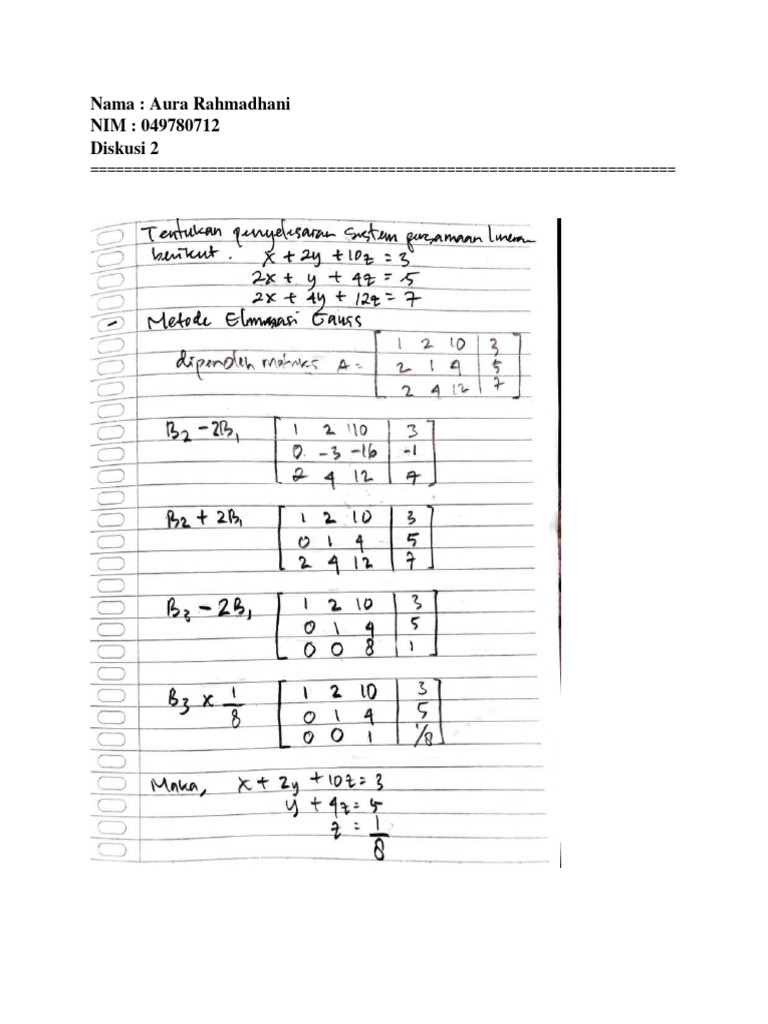 Nama : Aura Rahmadhani
NIM : 049780712
Diskusi 2
=====================================================================
Tentukan penyelesaian sistem persamaan linear
berikut. x + 2y + 10z = 3
2x + y + 4z = 5
2x + 4y + 12z = 7
- Metode Eliminasi Gauss
diperoleh matriks A =
1 2 10 | 3
2 1 4 | 5
2 4 12 | 7
B2 - 2B1
1 2 10 | 3
0 -3 -16 | -1
2 4 12 | 7
B2 + 2B1
1 2 10 | 3
0 1 4 | 5
2 4 12 | 7
B3 - 2B1
1 2 10 | 3
0 1 4 | 5
0 0 8 | 1
B3 x 1/8
1 2 10 | 3
0 1 4 | 5
0 0 1 | 1/8
Maka, x + 2y + 10z = 3
y + 4z = 5
z = 1/8